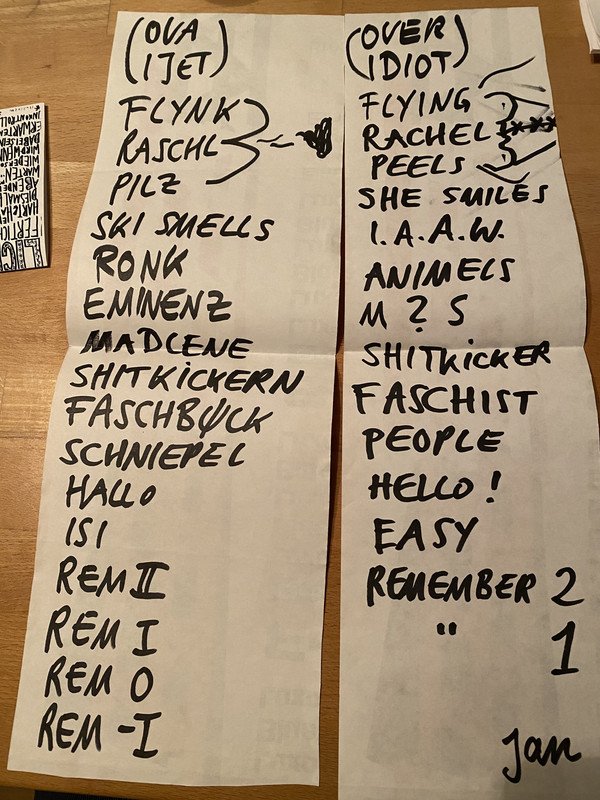 (OVA
IJET)
FLYNK
RASCHL
PILZ
SKI SMELLS
RONK
EMINENZ
MADLENE
SHITKICKERN
FASCHBUCK
SCHNIEPEL
HALLO
ISI
REM II
REM I
REM O
REM -I
(OVER
IDIOT)
FLYING
RACHEL
PEELS
SHE SMILES
I.A.A.W.
ANIMELS
M ? S
SHITKICKER
FASCHIST
PEOPLE
HELLO!
EASY
REMEMBER 2
" 1
Jan